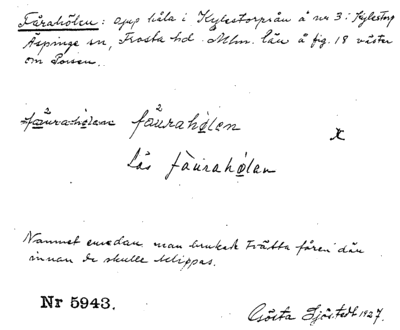 Fårahölen: djup håla i Kylestorpsån å nr 3 i Kylestorp
Äspinge sn, Frosta hd. Mlm. län å fig. 18 väster
om
fåurahölen fåurahølen x
Läs fåurahølan
Namnet emedan man brukade tvätta fåren där
innan de skulle klippas.
Nr 5943.
Gösta Sjöstedt 1927.